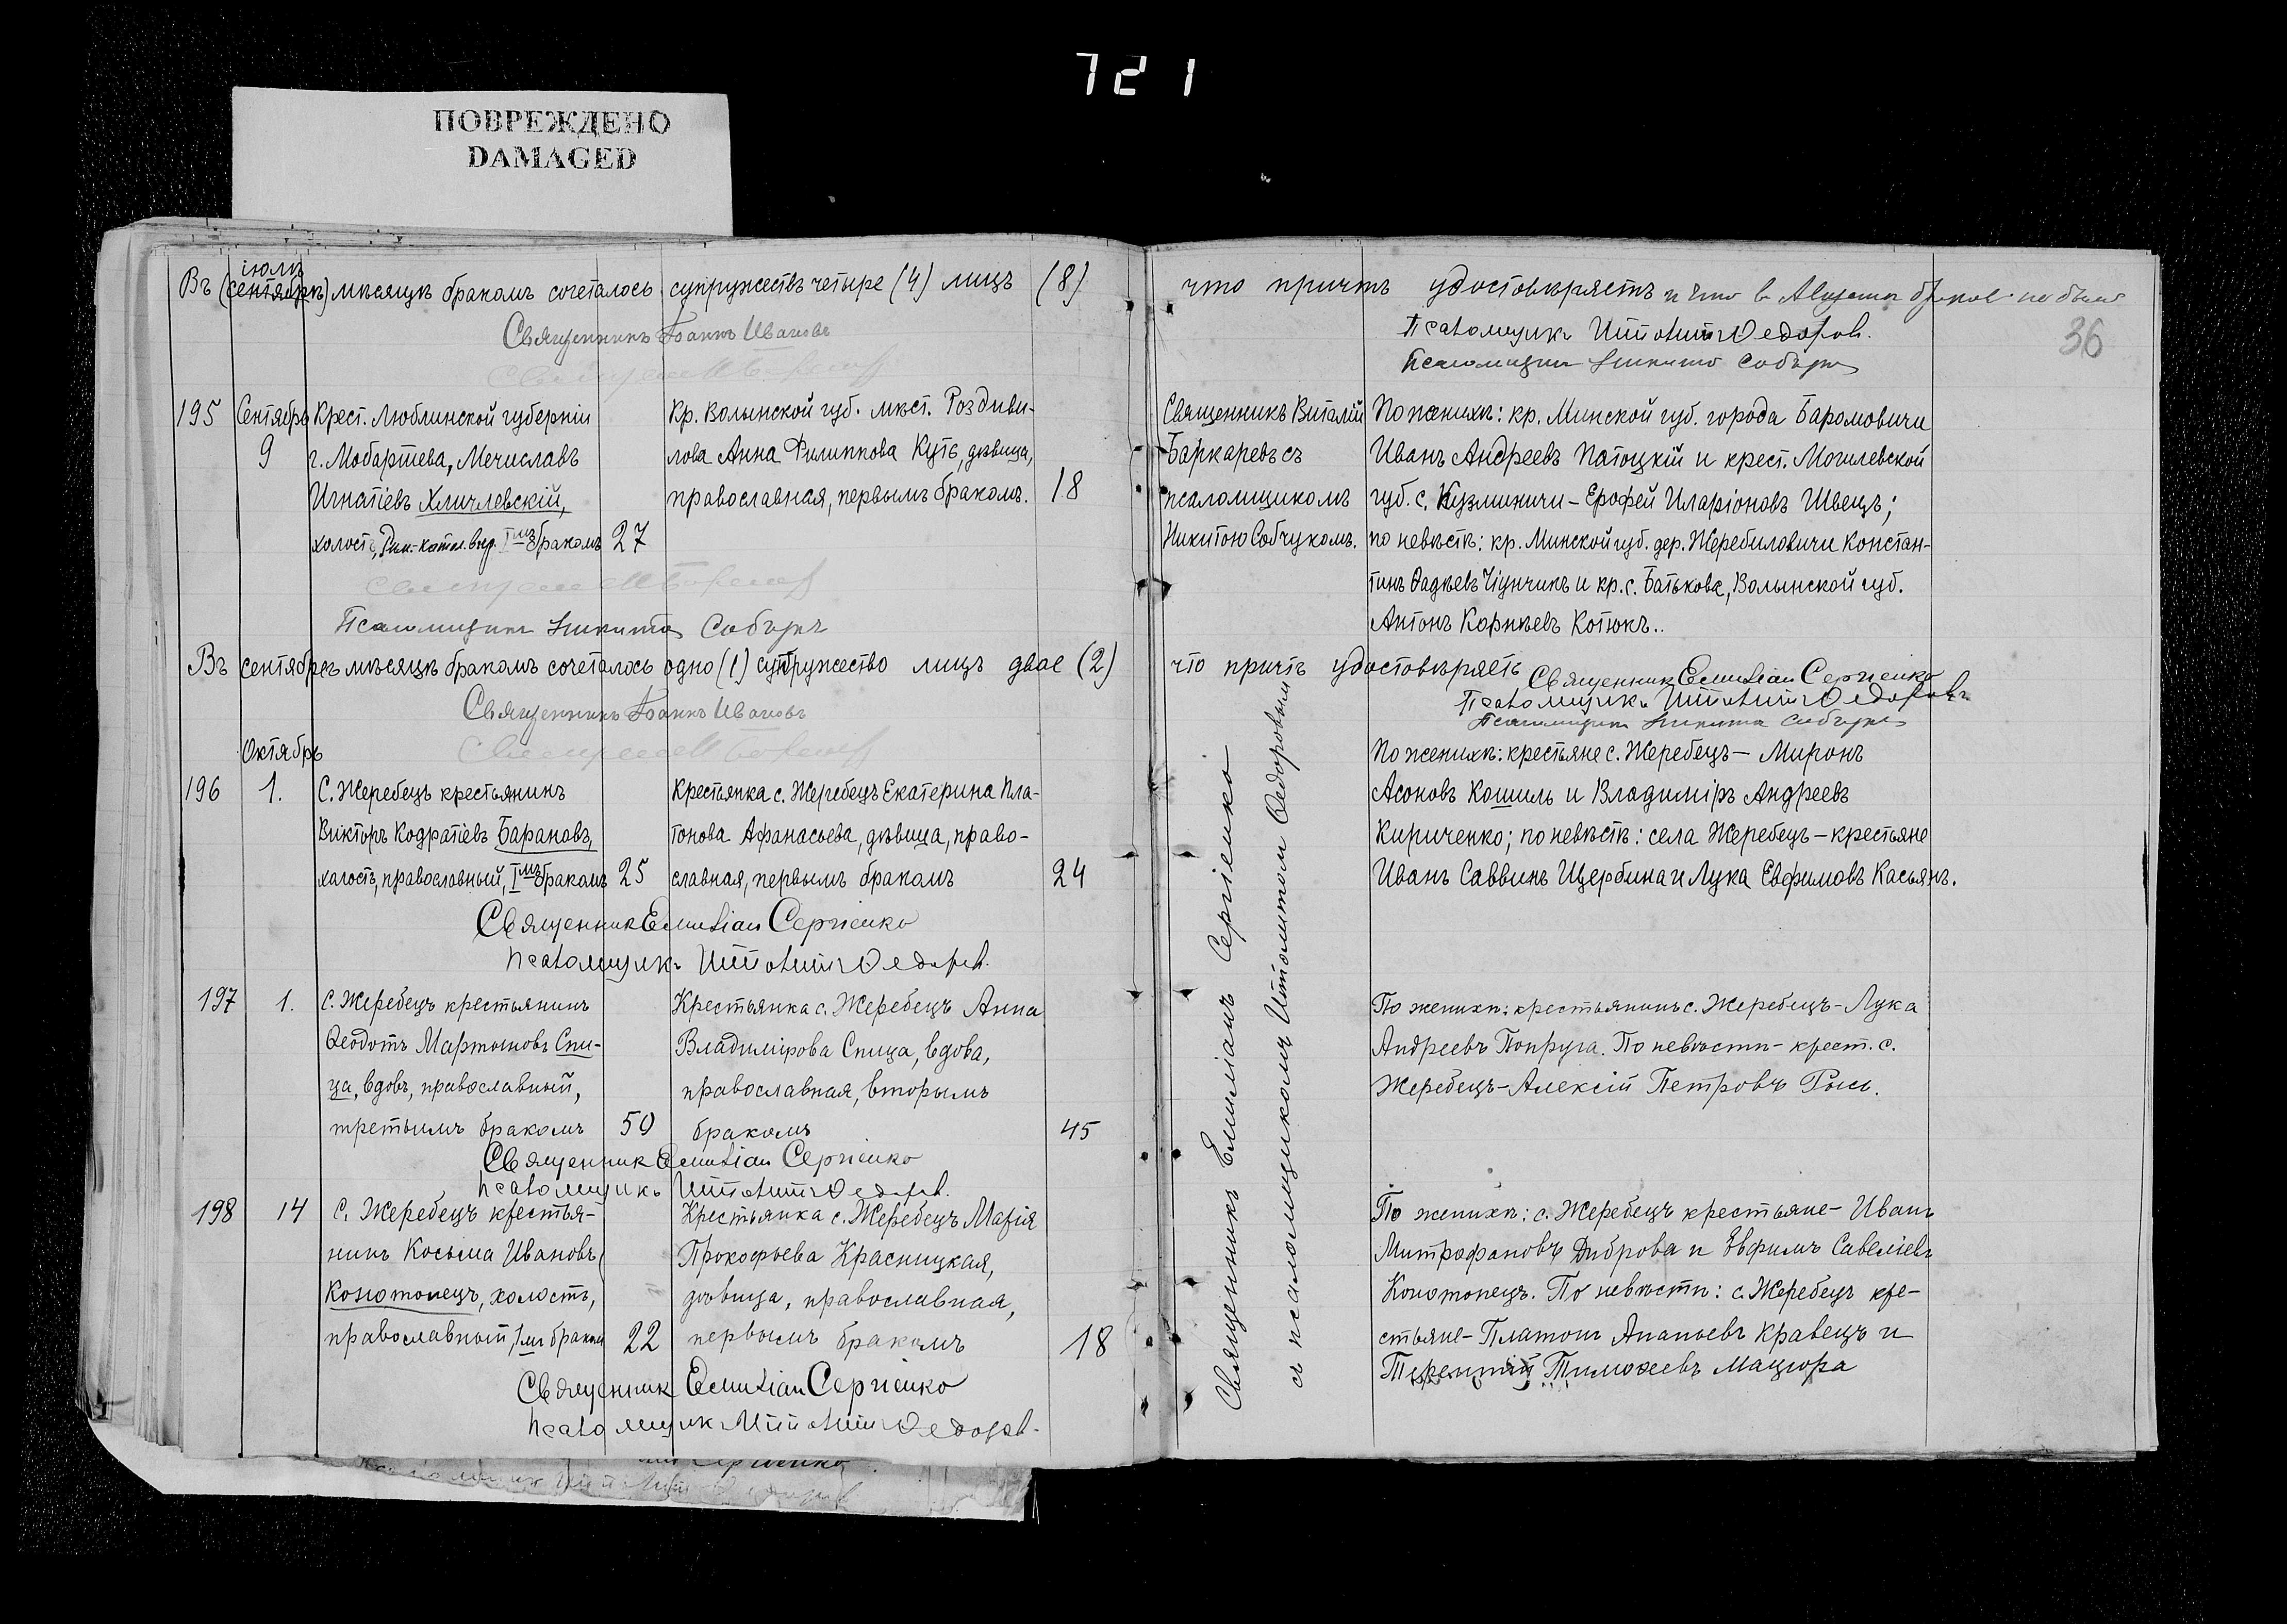 721
ПОВРЕЖДЕНО
DAMAGED
36
іюлѣ
Въ (сентябрѣ) мѣсяцѣ бракомъ сочеталось супружествъ четыре (4) лицъ (8)
Священникъ Іоаннъ Ивановъ
195 Сентябрь Крест. Люблинской губерніи Кр. Волынской губ. мѣст. Роздиви-
9 г. Мобартева, Мечиславъ лова Анна Филиппова Куть, дѣвица,
Игнатіевъ Хмичлевскій, православная, первымъ бракомъ. 18
холостъ, Рим.-катол. вѣр. Iмъ бракомъ 27
Псаломщикъ Никита Собчукъ
Въ сентябрѣ мѣсяцѣ бракомъ сочеталось одно (1) супружество лицъ двое (2)
Священникъ Іоаннъ Ивановъ
Октябрь
196 1. С. Жеребецъ крестьянинъ Крестьянка с. Жеребецъ Екатерина Пла-
Викторъ Кодратіевъ Барановъ, тонова Афанасьева, дѣвица, право-
холостъ, православный, Iмъ бракомъ 25 славная, первымъ бракомъ 24
Священник Емиліан Сергіенко
Псаломщикъ Ипполитъ Ѳедоров.
197 1. С. Жеребецъ крестьянинъ Крестьянка с. Жеребецъ Анна
Ѳеодотъ Мартыновъ Спи- Владимірова Спица, вдова,
ца, вдовъ, православный, православная, вторымъ
третьимъ бракомъ 50 бракомъ 45
Священник Емиліан Сергіенко
Псаломщикъ Ипполитъ Ѳедоров.
198 14 С. Жеребецъ крестья- Крестьянка с. Жеребецъ Марія
нинъ Косьма Ивановъ Прокофьева Красницкая,
Конотопецъ, холостъ, дѣвица, православная,
православный, Iмъ бракомъ 22 первымъ бракомъ 18
Священник Емиліан Сергіенко
Псаломщик Ипполитъ Ѳедоров.
что причтъ удостовѣряетъ и что в Августѣ браков не было
Псаломщикъ Ипполитъ Ѳедоров.
Псаломщикъ Никита Собчукъ
Священникъ Виталій По женихѣ: кр. Минской губ. города Барановичи
Баркаревъ съ Иванъ Андреевъ Патоцкій и крест. Могилевской
псаломщикомъ губ. с. Кузминичи - Ерофей Иларіоновъ Швецъ;
Никитою Собчукомъ. по невѣстѣ: кр. Минской губ. дер. Жеребиловичи Констан-
тинъ Фадѣевъ Чіунчикъ и кр. с. Батькова, Волынской губ.
Антонъ Корнѣевъ Котюкъ..
что причтъ удостовѣряетъ
Священник Емиліан Сергіенко
Псаломщикъ Ипполитъ Ѳедоровъ
Псаломщикъ Никита Собчукъ
По женихѣ: крестьяне с. Жеребецъ — Миронъ
Асоновъ Кошиль и Владиміръ Андреевъ
Кириченко; по невѣстѣ: села Жеребецъ - крестьяне
Иванъ Саввинъ Щербина и Лука Евфимовъ Касьянъ.
По женихѣ: крестьянинъ с. Жеребецъ - Лука
Андреевъ Попруга. По невѣстѣ - крест. с.
Жеребецъ - Алексій Петровъ Рысь.
По женихѣ: с. Жеребецъ крестьяне - Иванъ
Митрофановъ Диброва и Евфимъ Савеліевъ
Конотопецъ. По невѣстѣ: с. Жеребецъ кре-
стьяне - Платонъ Ананьевъ Кравецъ и
Терентій Тимоѳеевъ Мацюра
Священникъ Емиліанъ Сергіенко
съ псаломщикомъ Ипполитомъ Ѳедоровымъ